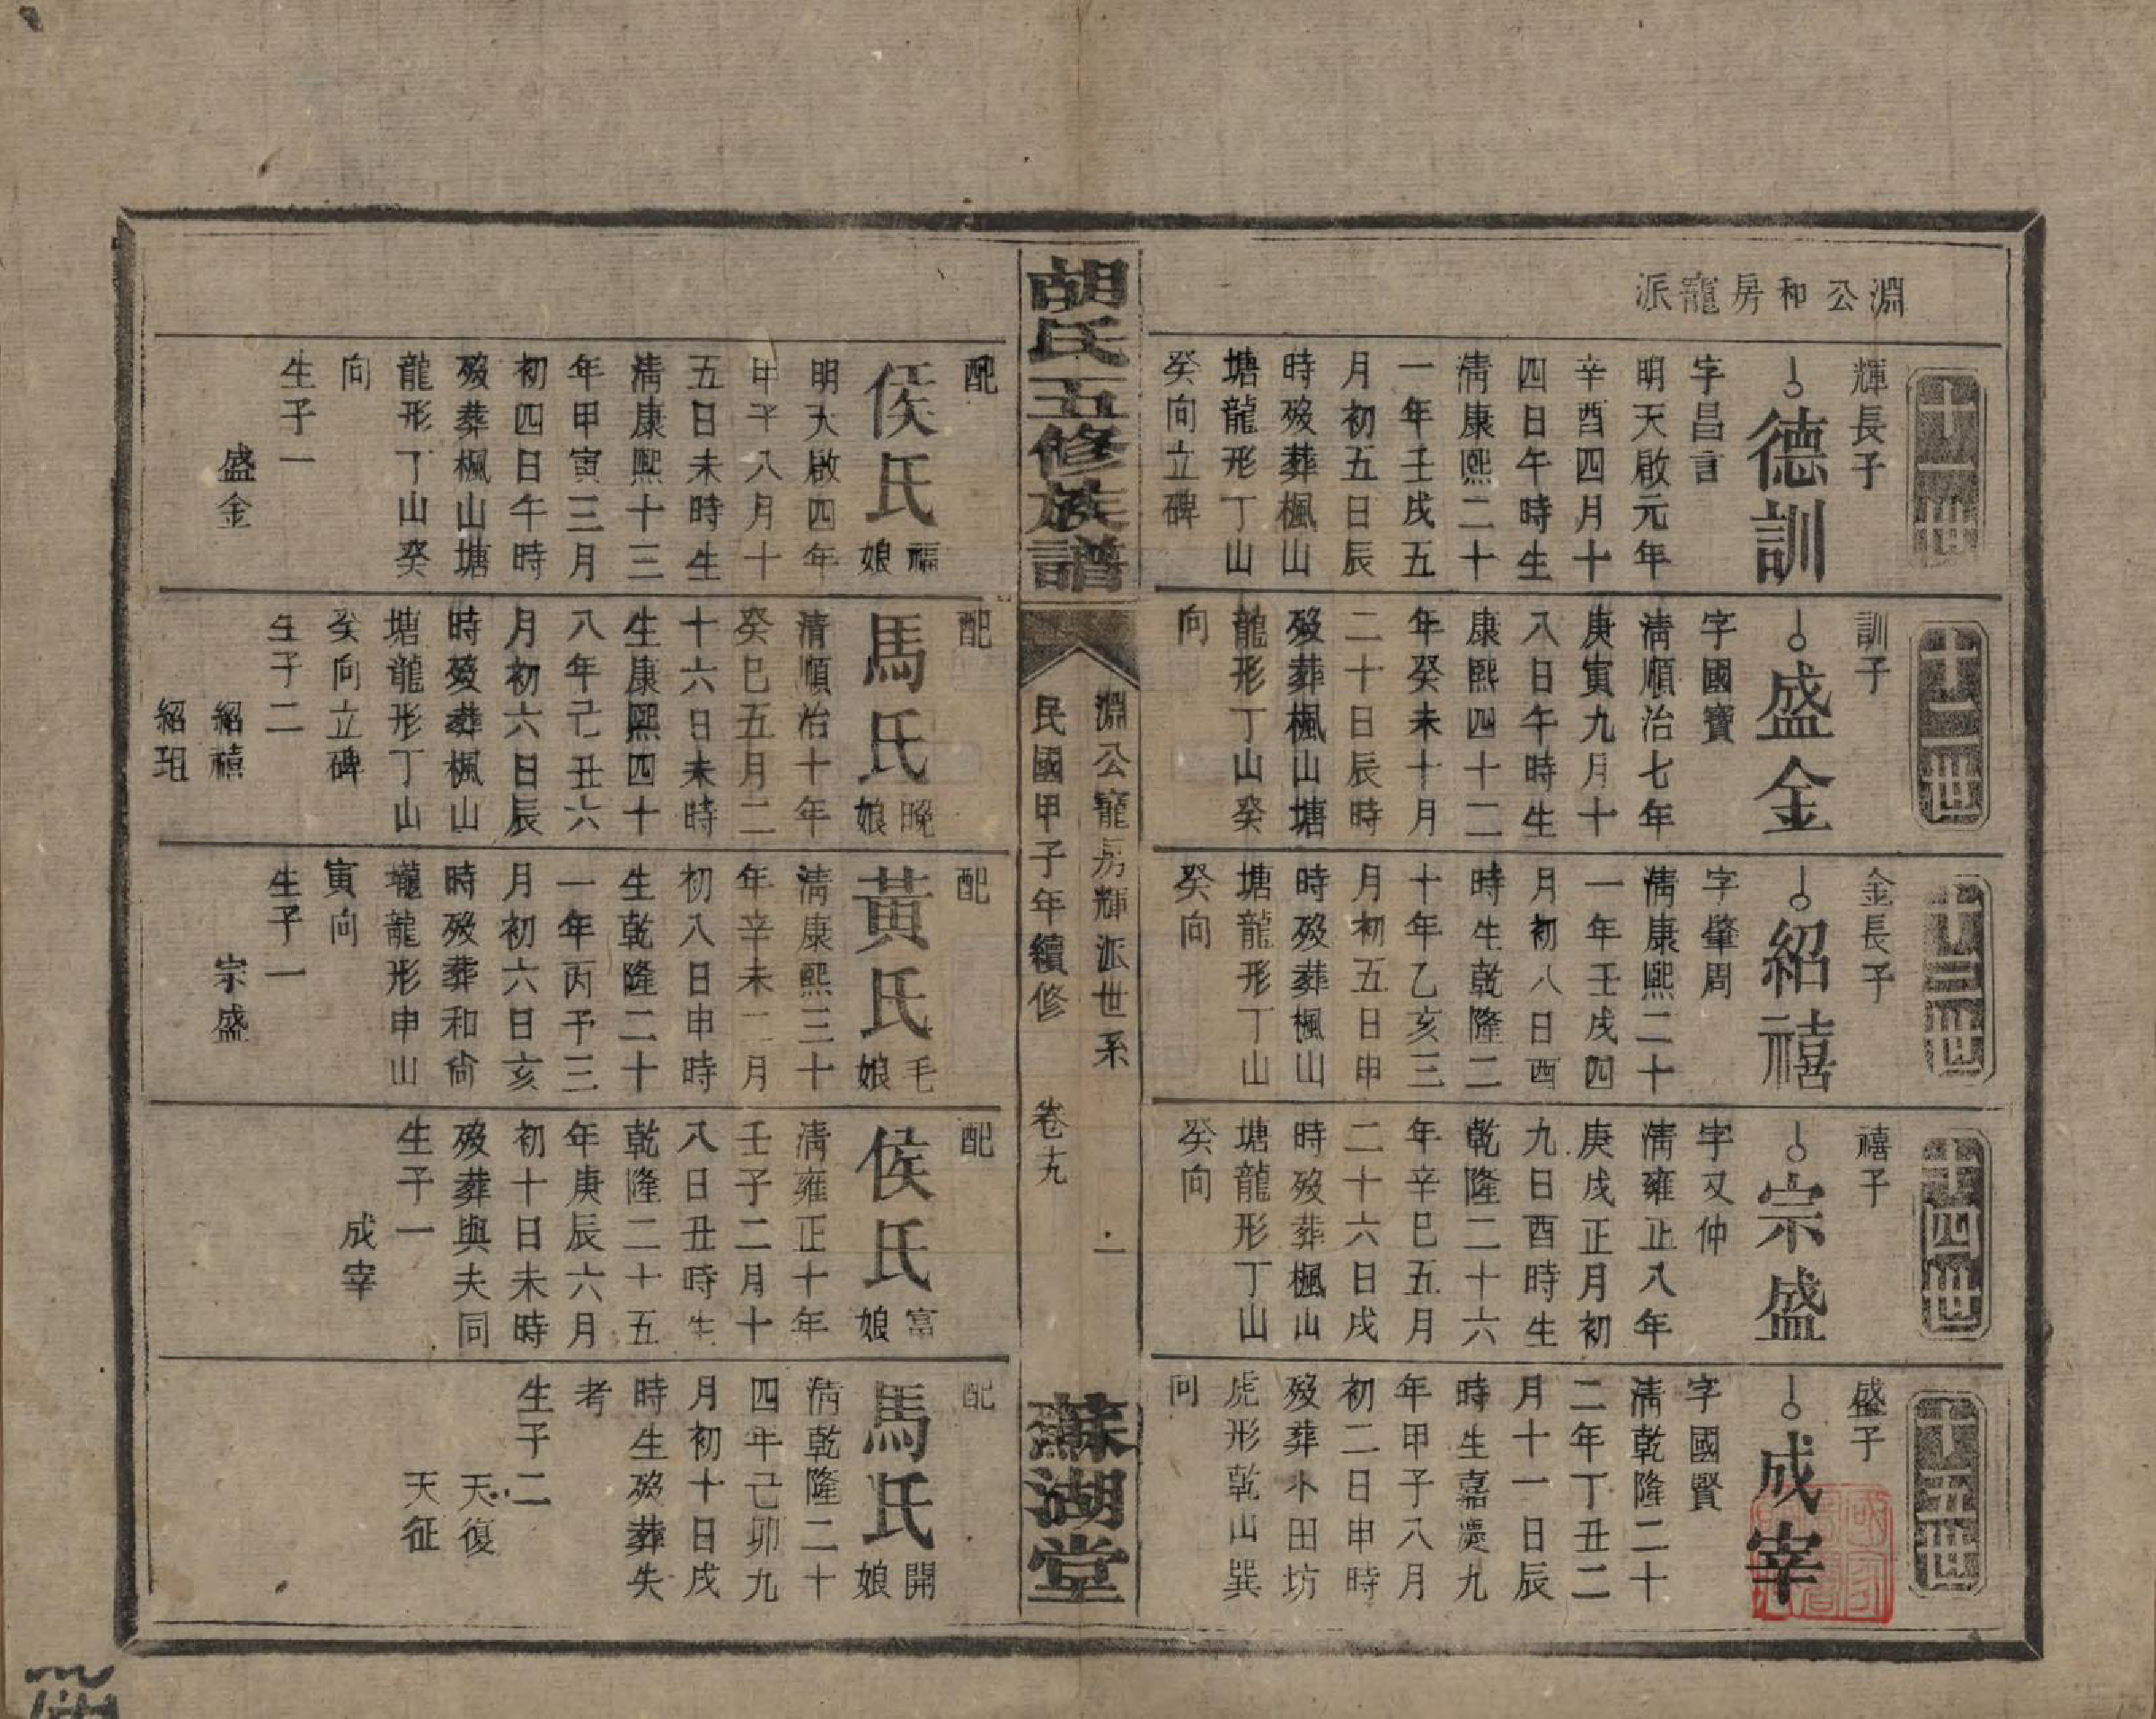 淵公和房寵派
十一世
輝長子
德訓
字昌言
明天啟元年
辛酉四月十
四日午時生
清康熙二十
一年壬戌五
月初五日辰
時歿葬楓山
塘龍形丁山
癸向立碑
十二世
訓子
盛金
字國寶
清順治七年
庚寅九月十
八日午時生
康熙四十二
年癸未十月
二十日辰時
歿葬楓山塘
龍形丁山癸
向
十三世
金長子
紹禧
字肇周
清康熙二十
一年壬戌四
月初八日酉
時生乾隆二
十年乙亥三
月初五日申
時歿葬楓山
塘龍形丁山
癸向
十四世
禧子
宗盛
字又仲
清雍正八年
庚戌正月初
九日酉時生
乾隆二十六
年辛巳五月
二十六日戌
時歿葬楓山
塘龍形丁山
癸向
十五世
盛子
成宰
字國賢
清乾隆二十
二年丁丑二
月十一日辰
時生嘉慶九
年甲子八月
初二日申時
歿葬木田坊
虎形乾山巽
向
胡氏五修族譜
淵公寵房輝派世系 一
民國甲子年續修 卷十九
蘇湖堂
配
侯氏福娘
明天啟四年
甲子八月十
五日未時生
清康熙十三
年甲寅三月
初四日午時
歿葬楓山塘
龍形丁山癸
向
生子一
盛金
配
馬氏晚娘
清順治十年
癸巳五月二
十六日未時
生康熙四十
八年己丑六
月初六日辰
時歿葬楓山
塘龍形丁山
癸向立碑
生子二
紹禧
紹珇
配
黃氏毛娘
清康熙三十
年辛未二月
初八日申時
生乾隆二十
一年丙子三
月初六日亥
時歿葬和尙
壠龍形申山
寅向
生子一
宗盛
配
侯氏富娘
清雍正十年
壬子二月十
八日丑時生
乾隆二十五
年庚辰六月
初十日未時
歿葬與夫同
生子一
成宰
配
馬氏開娘
清乾隆二十
四年己卯九
月初十日戌
時生歿葬失
考
生子二
天復
天征